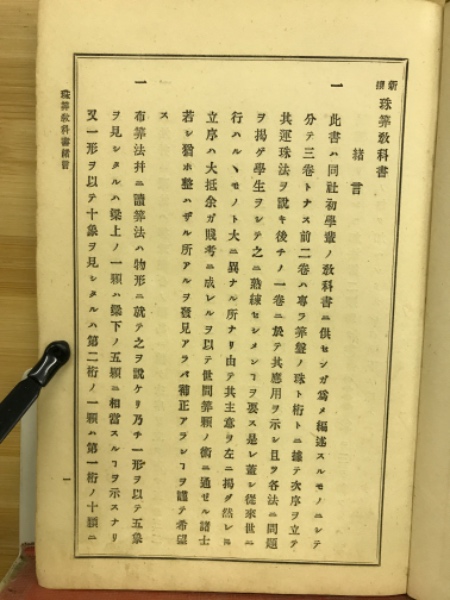 新撰 珠筭教科書
緒言
一 此書ハ同社初學輩ノ教科書ニ供センガ爲メ編述スルモノニシテ
分テ三卷トナス前二卷ハ專ラ筭盤ノ珠ト桁トニ據テ次序ヲ立テ
其運珠法ヲ說キ後チノ一卷ニ於テ其應用ヲ示シ且ツ各法ニ問題
ヲ揭ゲ學生ヲシテ之ニ熟練セシメンヿヲ要ス是レ蓋シ從來世ニ
行ハルヽモノト大ニ異ナル所ナリ由テ其主意ヲ左ニ揭グ然レ𪜈
立序ハ大抵余ガ賤考ニ成レルヲ以テ世間筭顆ノ術ニ通ゼル諸士
若シ猶ホ整ハザル所アルヲ發見アラバ補正アランヿヲ謹テ希望
ス
一 布筭法幷ニ讀筭法ハ物形ニ就テ之ヲ說ケリ乃チ一形ヲ以テ五象
ヲ見シタルハ梁上ノ一顆ハ梁下ノ五顆ニ相當スルヿヲ示スナリ
又一形ヲ以テ十象ヲ見シタルハ第二桁ノ一顆ハ第一桁ノ十顆ニ
珠筭教科書緒言
一